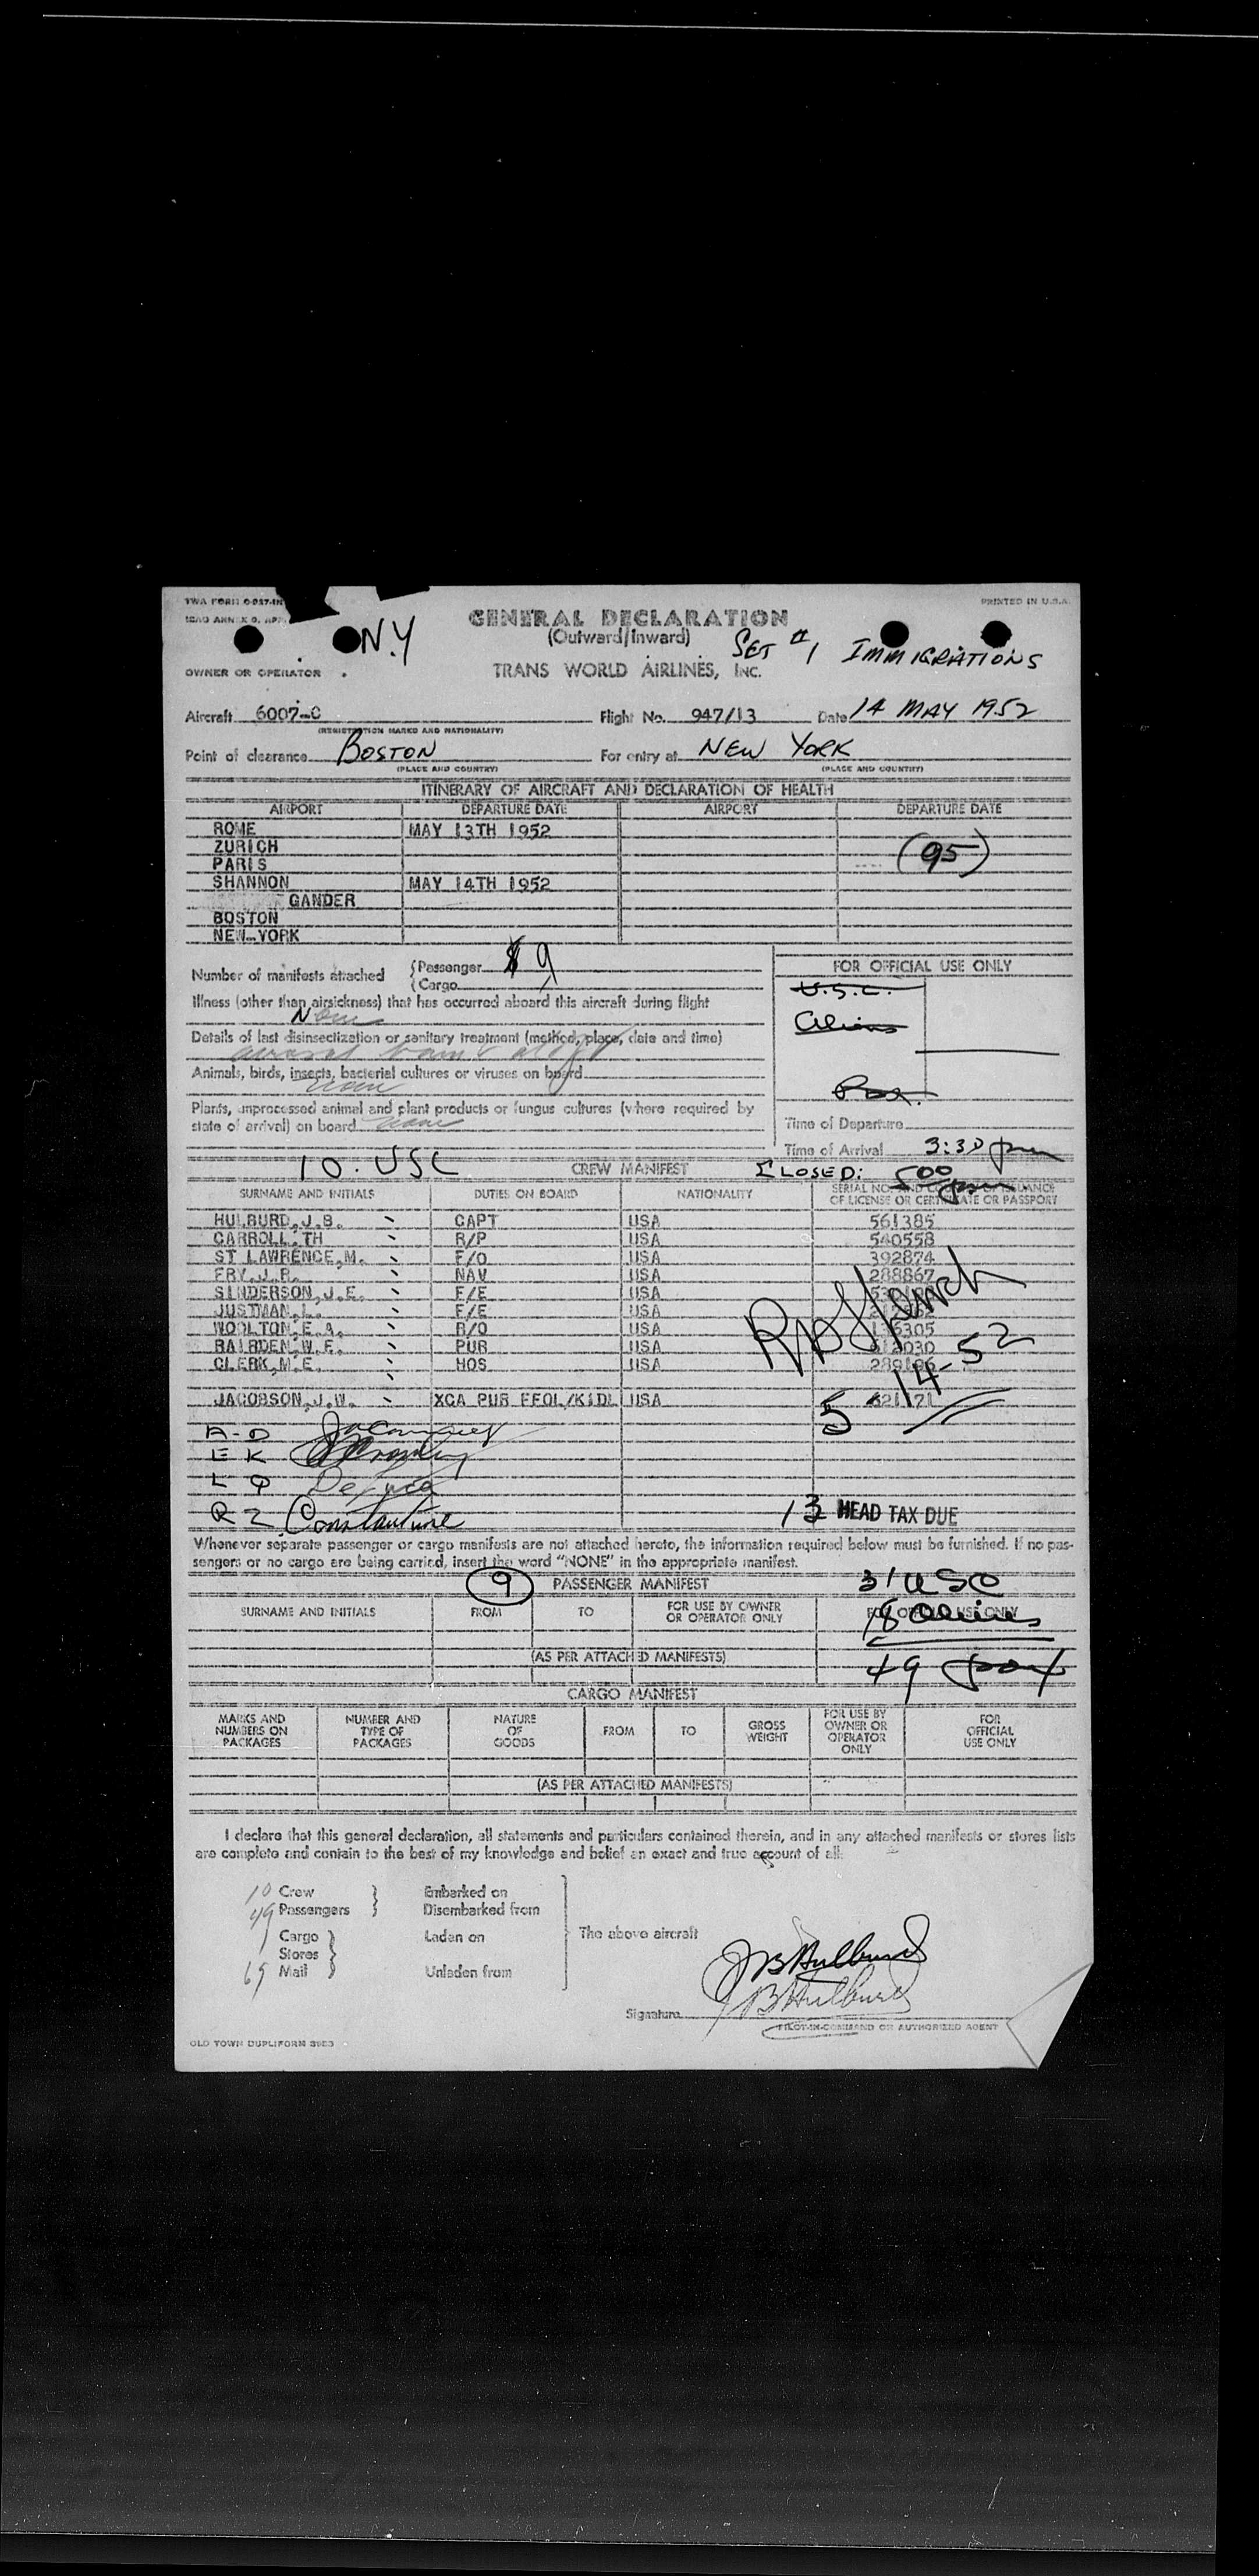 PRINTED IN U.S.A.
N.Y
GENERAL DECLARATION
(Outward/Inward)
SET #1 IMMIGRATIONS
OWNER OR OPERATOR
TRANS WORLD AIRLINES, INC.
Aircraft 6007-C Flight No. 947/13 Date 14 MAY 1952
(REGISTRATION MARKS AND NATIONALITY)
Point of clearance BOSTON For entry at NEW YORK
(PLACE AND COUNTRY) (PLACE AND COUNTRY)
ITINERARY OF AIRCRAFT AND DECLARATION OF HEALTH
AIRPORT DEPARTURE DATE AIRPORT DEPARTURE DATE
ROME MAY 13TH 1952
ZURICH (95)
PARIS
SHANNON MAY 14TH 1952
GANDER
BOSTON
NEW YORK
Number of manifests attached { Passenger 9
{ Cargo
FOR OFFICIAL USE ONLY
U.S.C.
Aliens
Illness (other than airsickness) that has occurred aboard this aircraft during flight
None
Details of last disinsectization or sanitary treatment (method, place, date and time)
Animals, birds, insects, bacterial cultures or viruses on board
none
Plants, unprocessed animal and plant products or fungus cultures (where required by
state of arrival) on board none
Time of Departure
Time of Arrival 3:30 pm
CLOSED: 500 pm
10. USC CREW MANIFEST
SURNAME AND INITIALS DUTIES ON BOARD NATIONALITY SERIAL NO. AND OF LICENSE OR CERTIFICATE OR PASSPORT
HULBURD, J.B. CAPT USA 561385
CARROLL, TH R/P USA 540558
ST LAWRENCE, M. F/O USA 392874
FRY, J.R. NAV USA 288867
SINDERSON, J.E. F/E USA
JUSTMAN, L. F/E USA
WOOLTON, E.A. R/O USA
BAIRDEN, W.F. PUR USA
CLERK, M.E. HOS USA
JACOBSON, J.W. XCA PUR EFOL/KIDL USA
5-14-52
A-D
E K
L Q
R Z Constantine
13 HEAD TAX DUE
Whenever separate passenger or cargo manifests are not attached hereto, the information required below must be furnished. If no pas-
sengers or no cargo are being carried, insert the word "NONE" in the appropriate manifest.
9 PASSENGER MANIFEST 31 USC
SURNAME AND INITIALS FROM TO FOR USE BY OWNER OR OPERATOR ONLY FOR OFFICIAL USE ONLY
18 Aliens
(AS PER ATTACHED MANIFESTS) 49 pax
CARGO MANIFEST
MARKS AND NUMBERS ON PACKAGES NUMBER AND TYPE OF PACKAGES NATURE OF GOODS FROM TO GROSS WEIGHT FOR USE BY OWNER OR OPERATOR ONLY FOR OFFICIAL USE ONLY
(AS PER ATTACHED MANIFESTS)
I declare that this general declaration, all statements and particulars contained therein, and in any attached manifests or stores lists
are complete and contain to the best of my knowledge and belief an exact and true account of all
10 Crew } Embarked on
49 Passengers } Disembarked from
Cargo } Laden on The above aircraft
Stores }
Mail } Unladen from
JB Hulburd
JB Hulburd
Signature
PILOT-IN-COMMAND OR AUTHORIZED AGENT
OLD TOWN DUPLIFORM